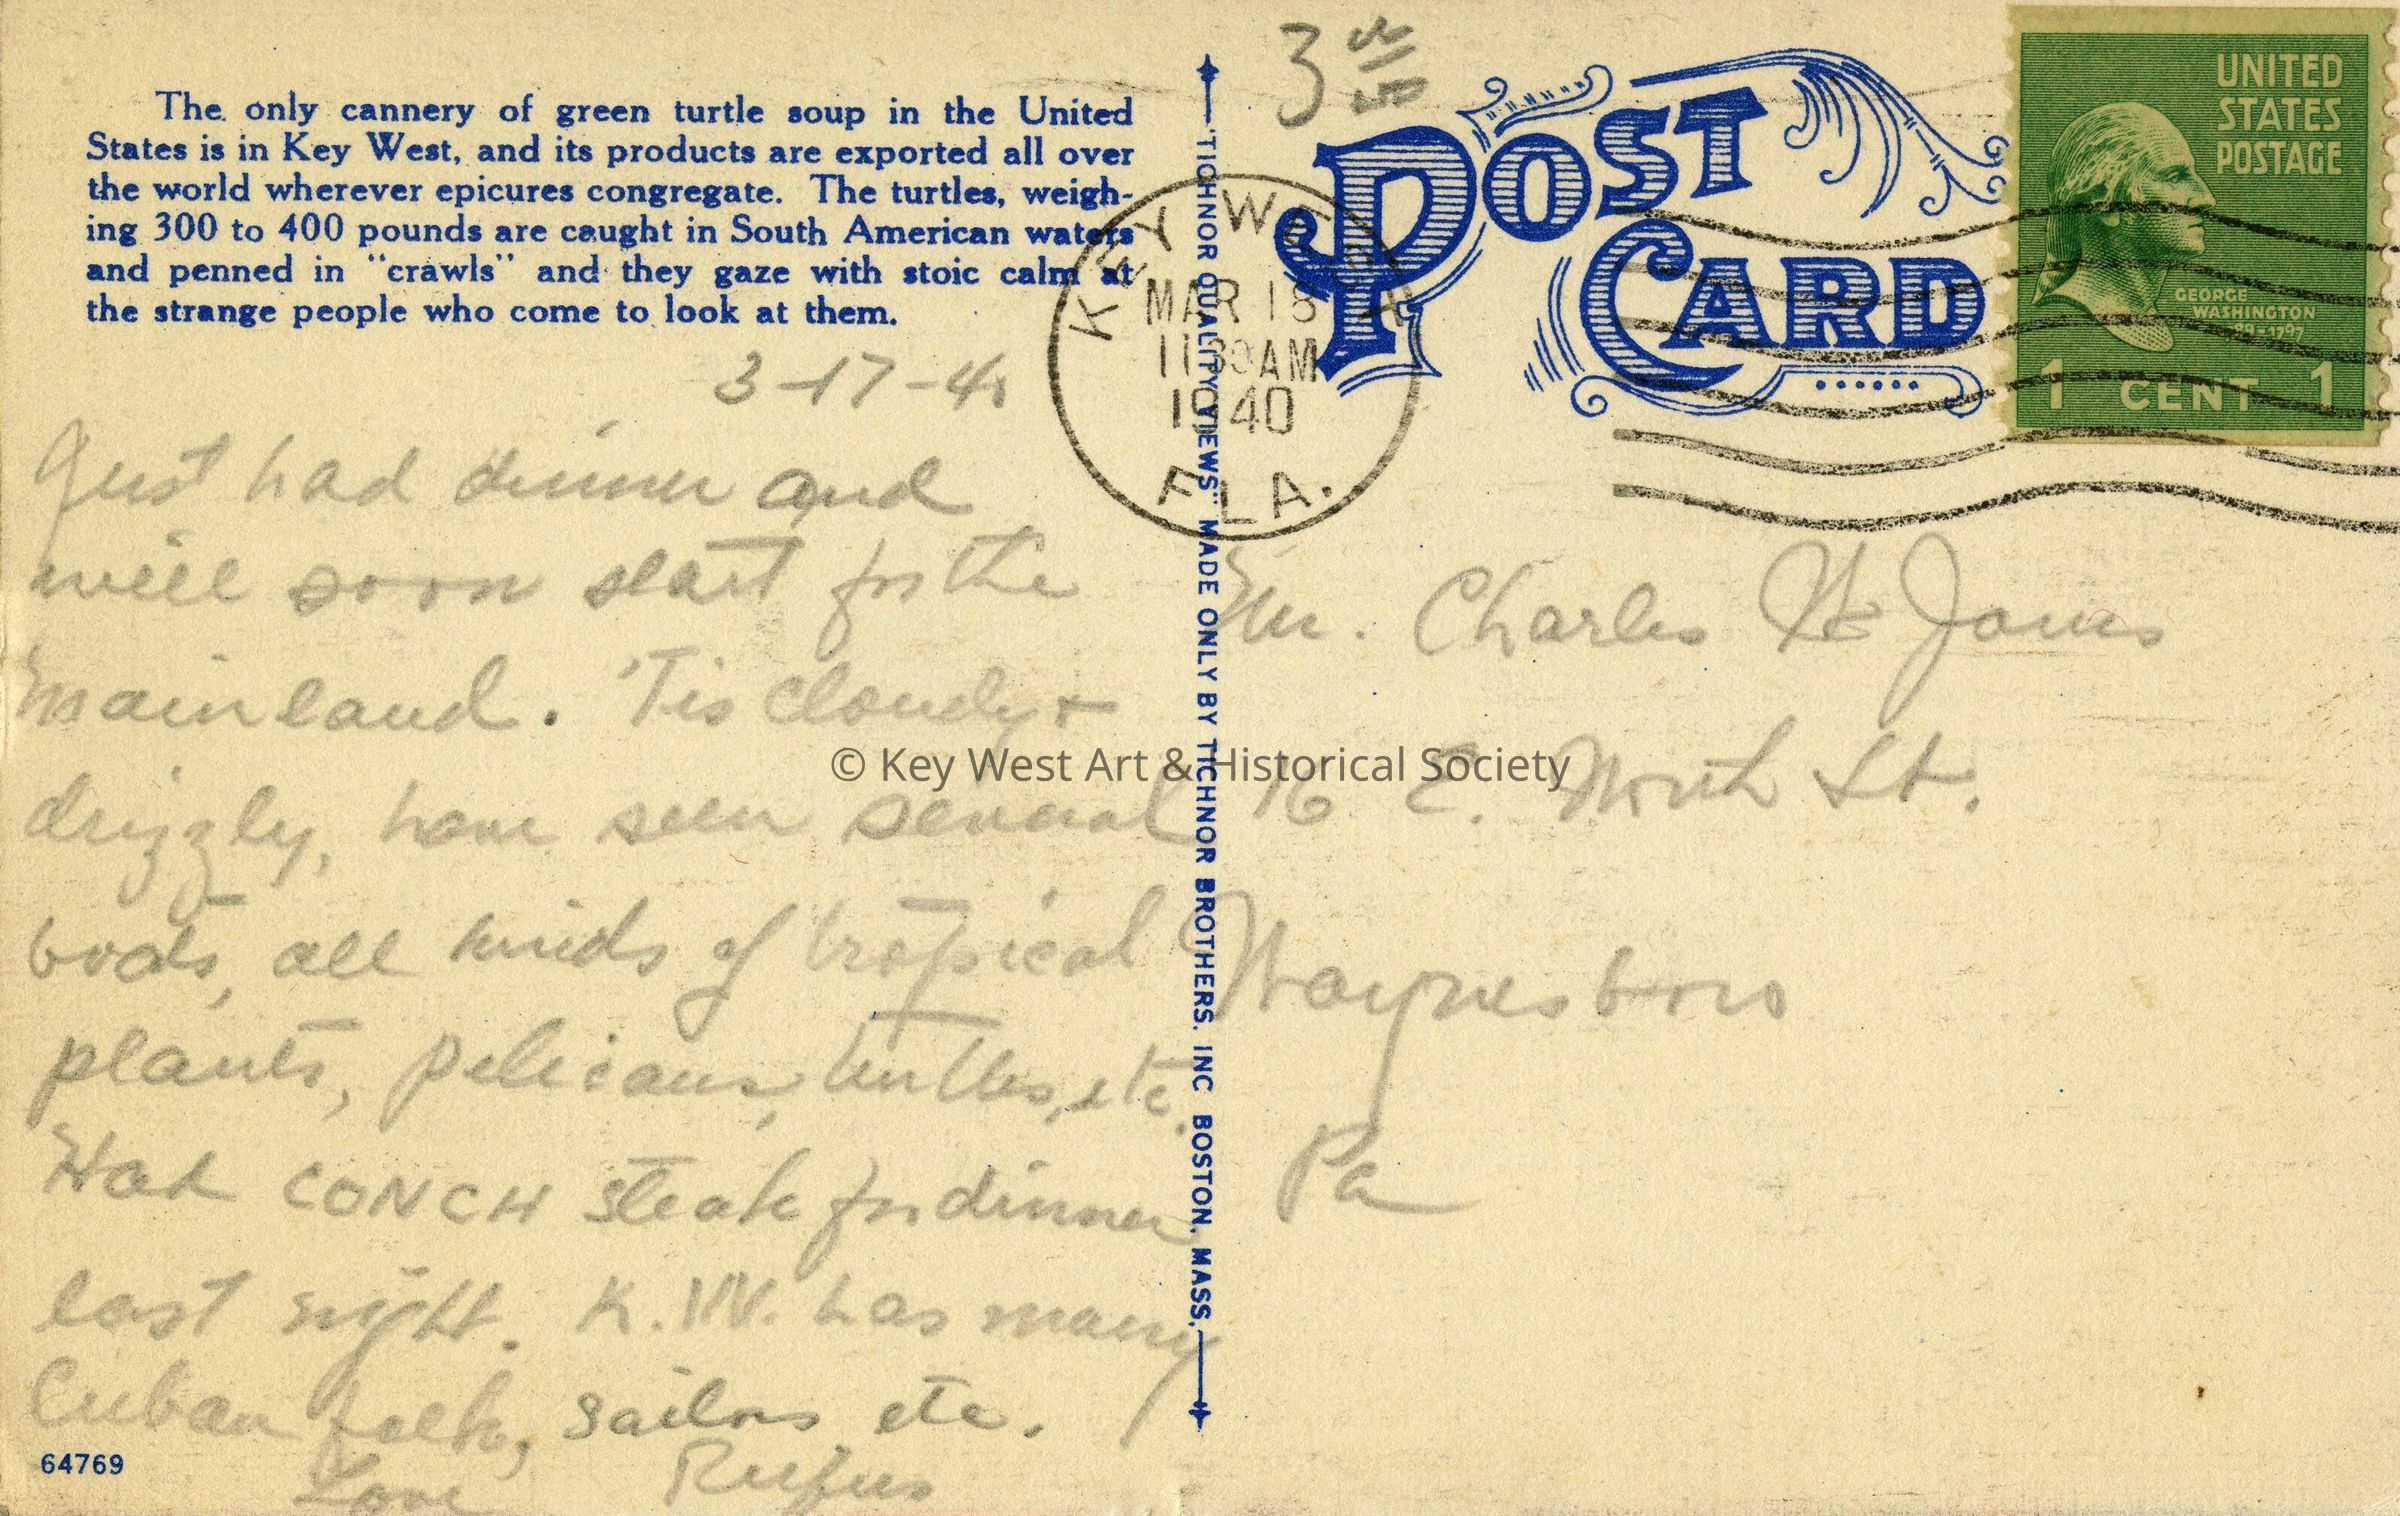 The only cannery of green turtle soup in the United
States is in Key West, and its products are exported all over
the world wherever epicures congregate. The turtles, weigh-
ing 300 to 400 pounds are caught in South American waters
and penned in "crawls" and they gaze with stoic calm at
the strange people who come to look at them.
3-17-40
Just had dinner and
will soon start for the
mainland. 'Tis cloudy +
drizzly, have seen several
boats, all kinds of tropical
plants, pelicans, turtles, etc.
Had CONCH steak for dinner
last night. K.W. has many
Cuban folk, sailors etc.
Love Rufus
64769
"TICHNOR QUALITY VIEWS" MADE ONLY BY TICHNOR BROTHERS. INC BOSTON, MASS.
3
POST
CARD
KEY WEST
MAR 18
11 30 AM
1940
FLA.
UNITED
STATES
POSTAGE
GEORGE
WASHINGTON
1 CENT 1
Mr. Charles
16 E. North St.
Waynesboro
Pa
© Key West Art & Historical Society